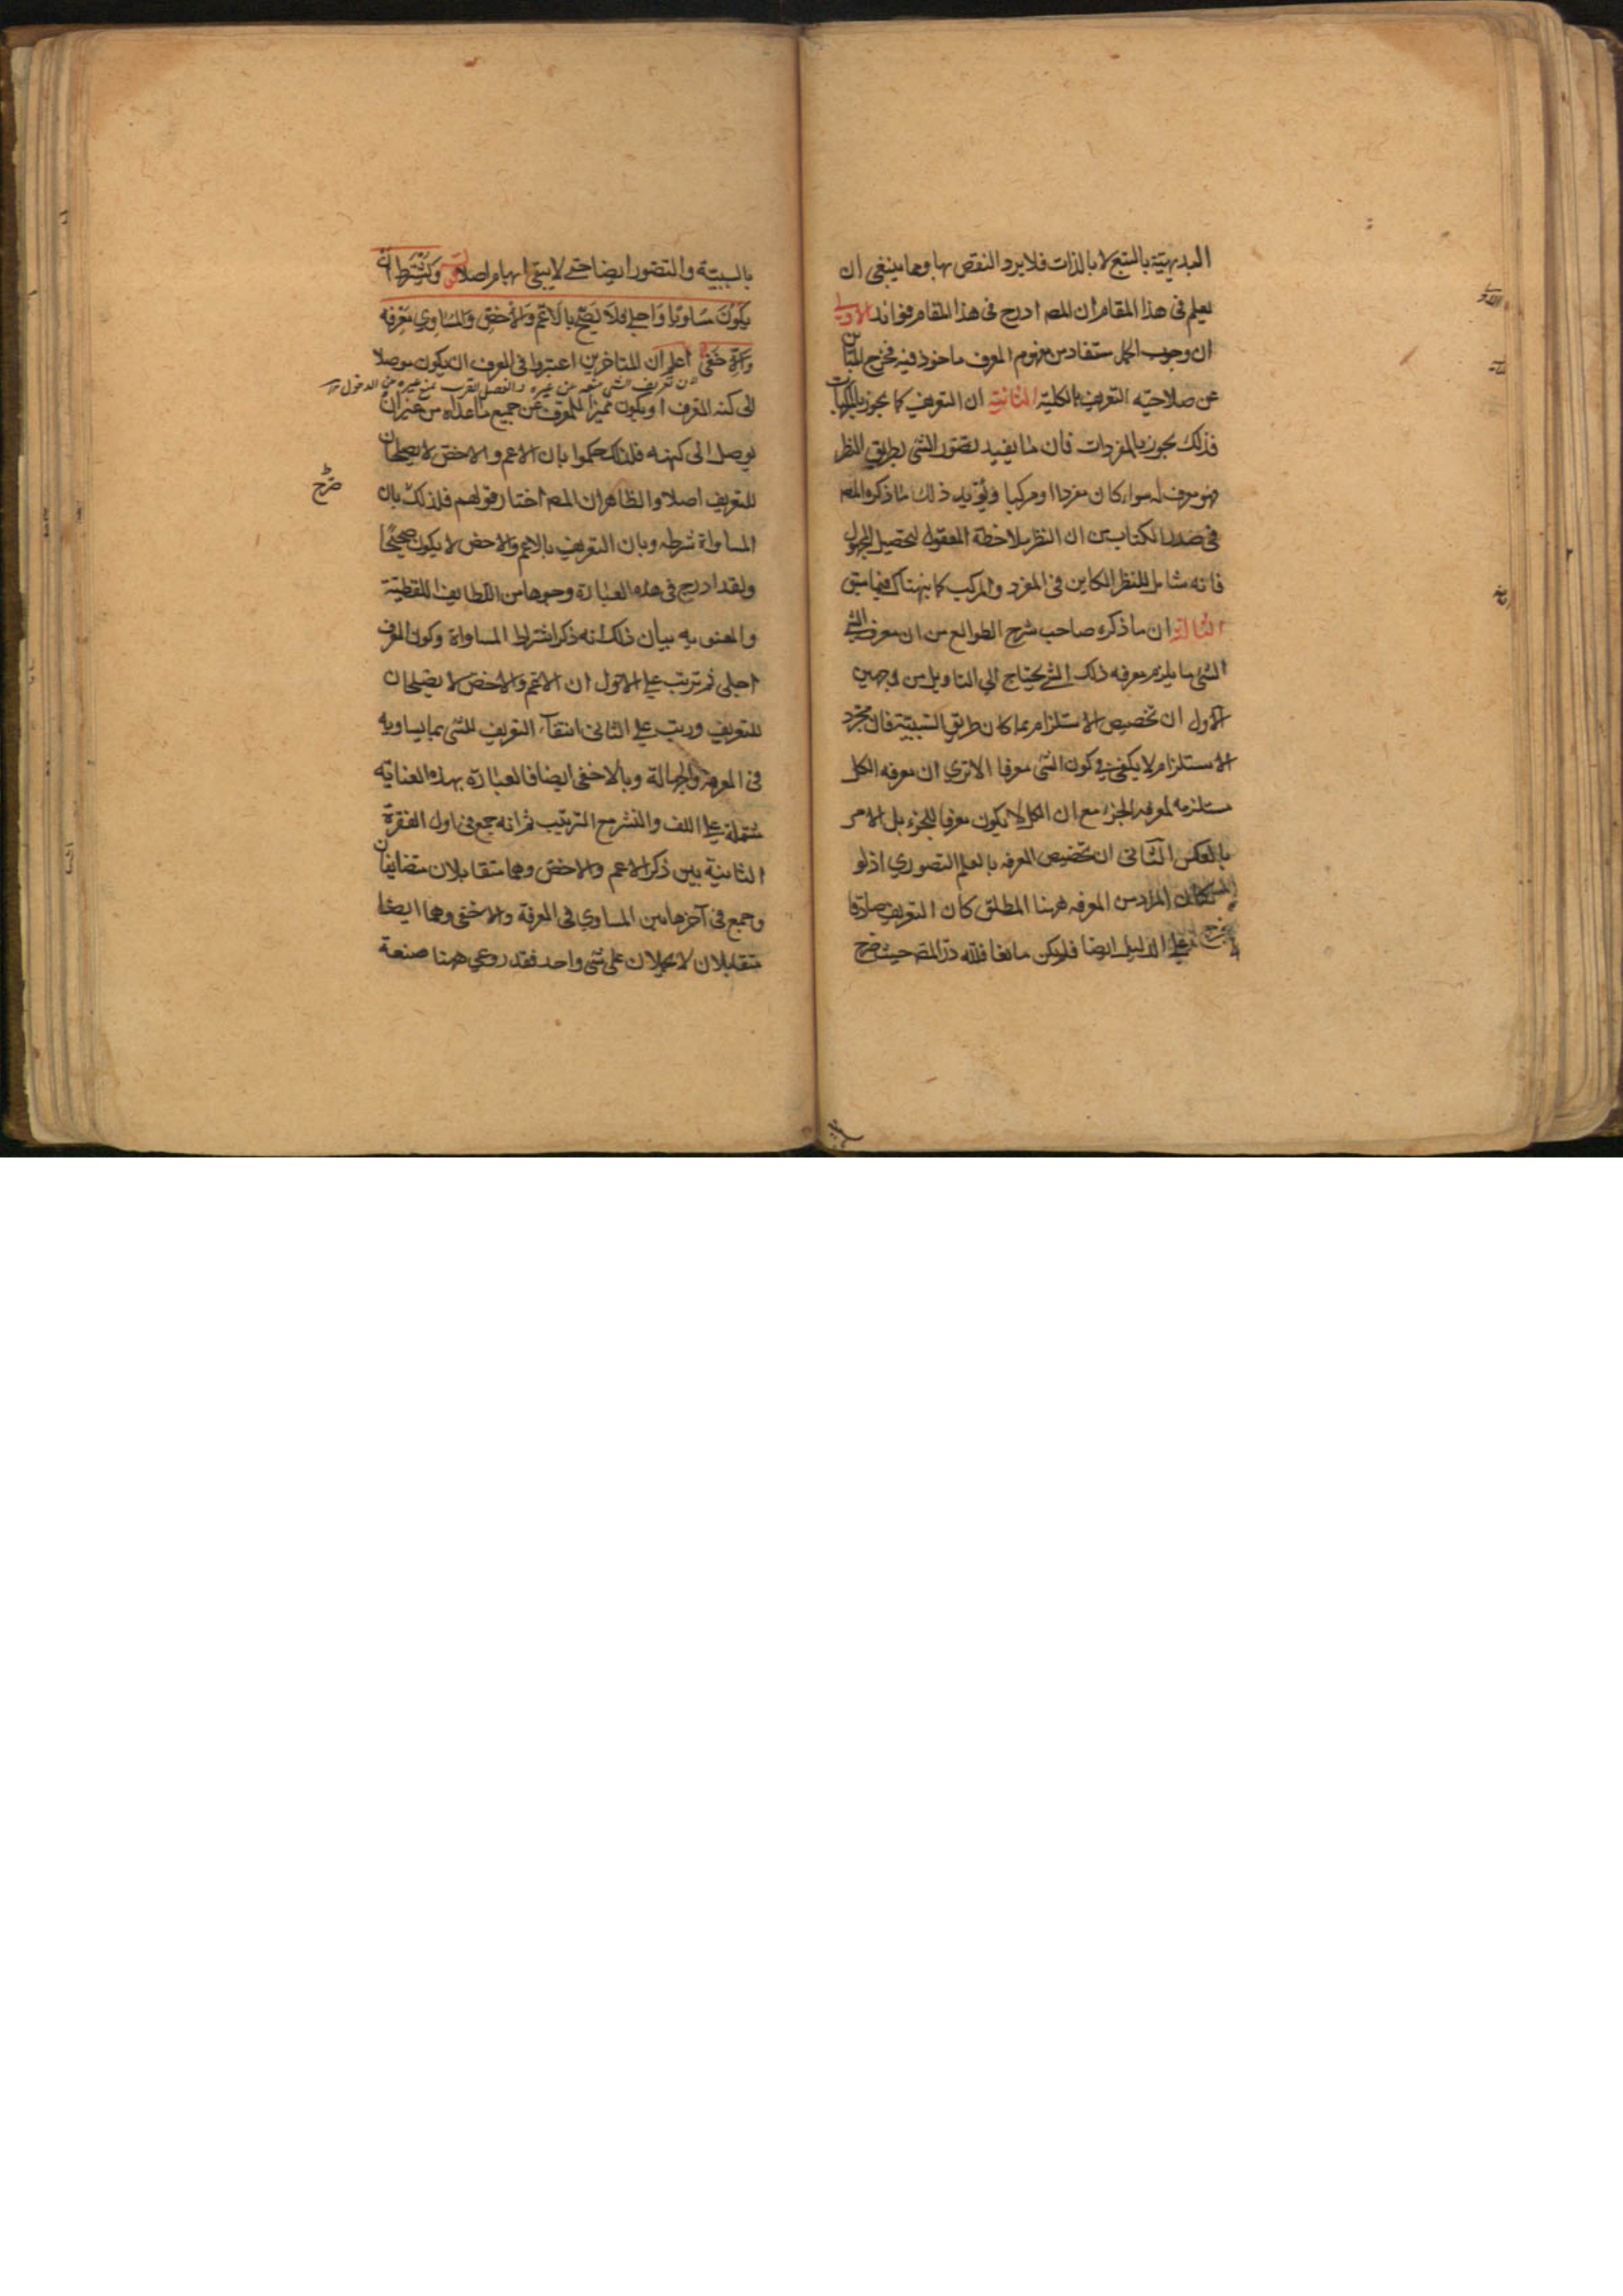 البديهية بالتبع لا بالذات فلا يرد النقص بها وهما ينبغي ان
يعلم في هذا المقام ان المصـ ادرج في هذا المقام فوائد الاولى
ان وجوب الحمل مستفاد من مفهوم المعرف ماخوذ فيه فخرج المباين
عن صلاحية التعريف بالكلية الثانية ان التعريف كما يجوز بالمركبات
فذلك يجوز بالمفردات فان ما يفيد تصور الشئ بطريق النظر
فهو معرف له سواء كان مفردا او مركبا ويؤيد ذلك ما ذكره المصـ
في صدر الكتاب من ان النظر ملاحظة المعقول لتحصيل المجهول
فانه شامل للنظر الكاين في المفرد والمركب كما نبهناك فيما سبق
الثالثة ان ما ذكره صاحب شرح الطوالع من ان معرف الشئ
الشئ ما يلزم معرفه ذلك الشئ يحتاج الي التاويل من وجهين
الاول ان تخصيص الاستلزام بما كان طريق السببية فان مجرد
الاستلزام لا يكفي في كون الشئ معرفا الا تري ان معرفه الكل
مستلزمه لمعرفه الجزء مع ان الكل لا يكون معرفا للجزء بل الامر
بالعكس الثاني ان تخصيص المعرفه بالعلم التصوري اذ لو
كان المراد من المعرفه ههنا المطلق كان التعريف صادقا
علي الدليل ايضا فلم يكن مانعا فلله در المصـ حيث صرح
بالسببية والتصور ايضا حتى لا يبقى ابهام اصلا ويشترط ان
يكون مساويا واجلى فلا يصح بالاعم والاخص والمساوي معرفه
والاخفى اعلم ان المتاخرين اعتبروا في المعرف ان يكون موصلا
ان تعريف الشئ منعه عن غيره والفصل القريب يمنع غيره عن الدخول
الى كنه المعرف او يكون مميزا للمعرف عن جميع ما عداه من غير ان
يوصل الى كنهه فلذلك حكموا بان الاعم والاخص لا يصلحان
للتعريف اصلا والظاهر ان المصـ اختار قولهم فلذلك بان
صرح
المساواة شرطه وبان التعريف بالاعم والاخص لا يكون صحيحا
ولقد ادرج في هذه العبارة وجوها من اللطايف اللفظية
والمعنويه بيان ذلك انه ذكر اشتراط المساواة وكون المعرف
اجلى ثم ترتب علي الاول ان الاعم والاخص لا يصلحان
للتعريف ورتب علي الثاني انتقاء التعريف للشئ بما يساويه
في المعرفة والجهالة وبالاخفى ايضا فالعبارة بهذه العناية
مشتملة علي اللف والنشر مع الترتيب ثم انه جمع في اول الفقرة
الثانية بين ذكر الاعم والاخص وهما متقابلان متضايفان
وجمع في آخرها بين المساوي في المعرفة والاخفى وهما ايضا
متقابلان لا يحملان على شئ واحد فقد روعي ههنا صنعة